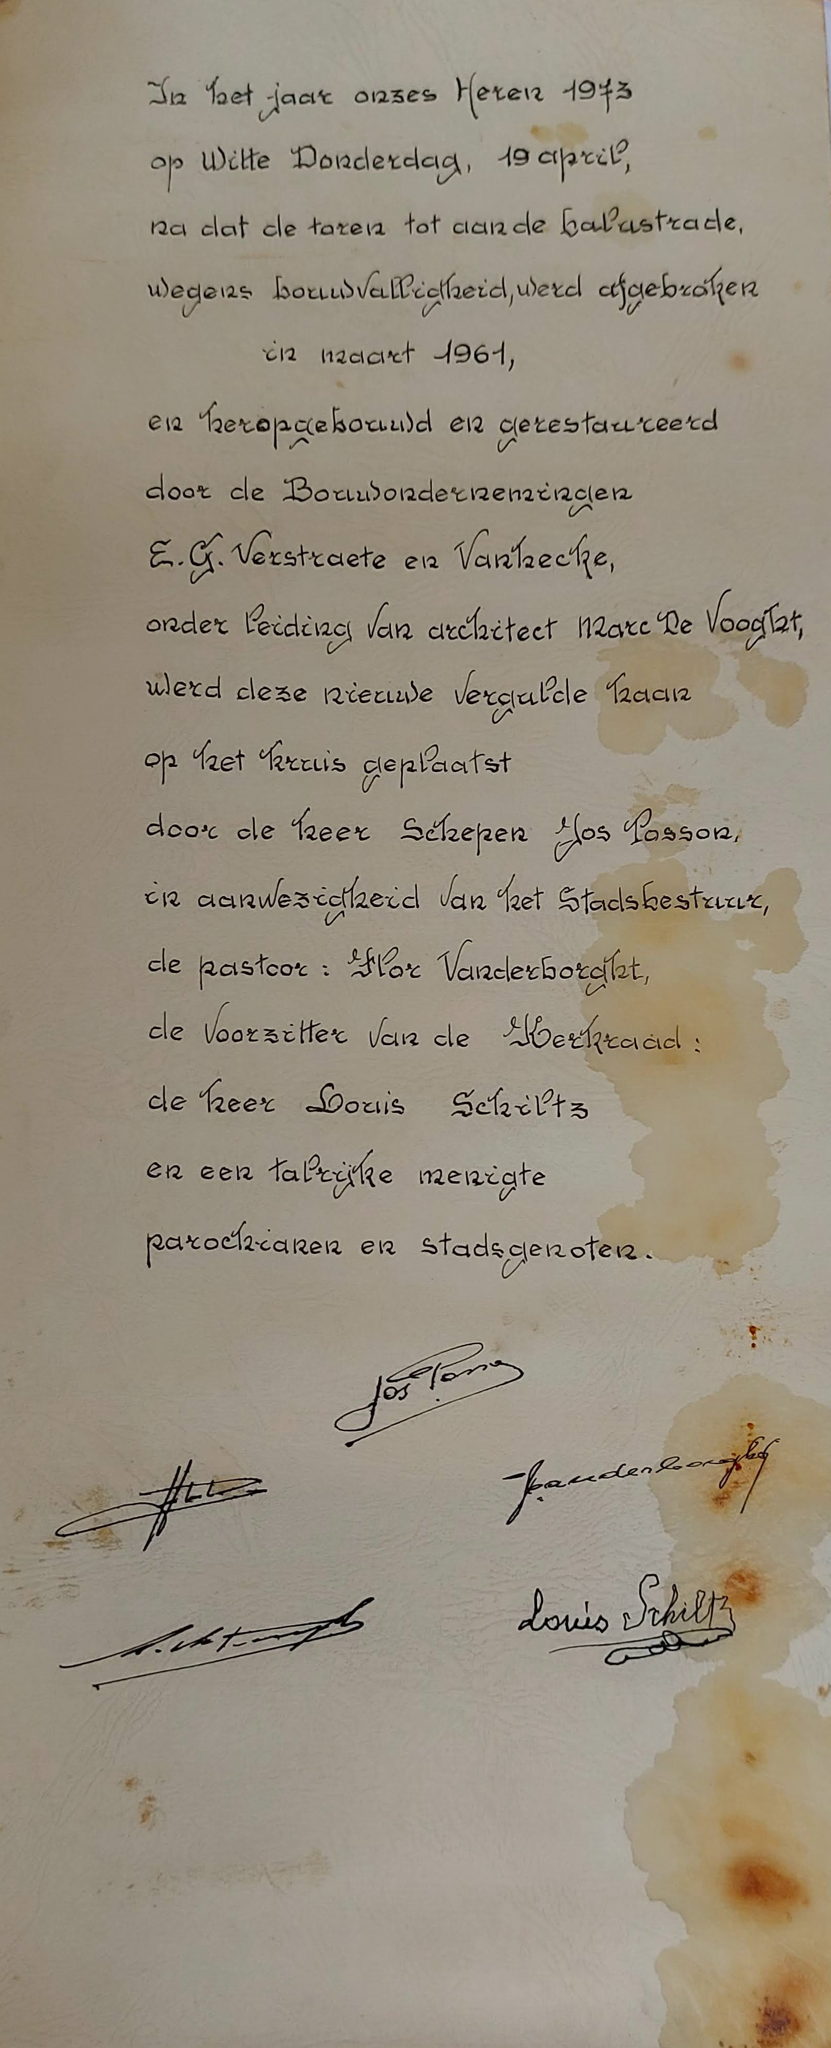 In het jaar onzes Heren 1973
op Witte Donderdag, 19 april,
na dat de toren tot aan de balustrade,
wegens bouwvalligheid, werd afgebroken
in maart 1961,
en heropgebouwd en gerestaureerd
door de Bouwondernemingen
E.G. Verstraete en Vanhecke,
onder leiding van architect Marc De Vooght,
werd deze nieuwe vergulde haan
op het kruis geplaatst
door de heer Schepen Jos Posson,
in aanwezigheid van het Stadsbestuur,
de pastoor : Flor Vanderborght,
de voorzitter van de Kerkraad :
de heer Louis Schiltz
en een talrijke menigte
parochianen en stadsgenoten.
Jos
Vanderborght
Louis Schiltz